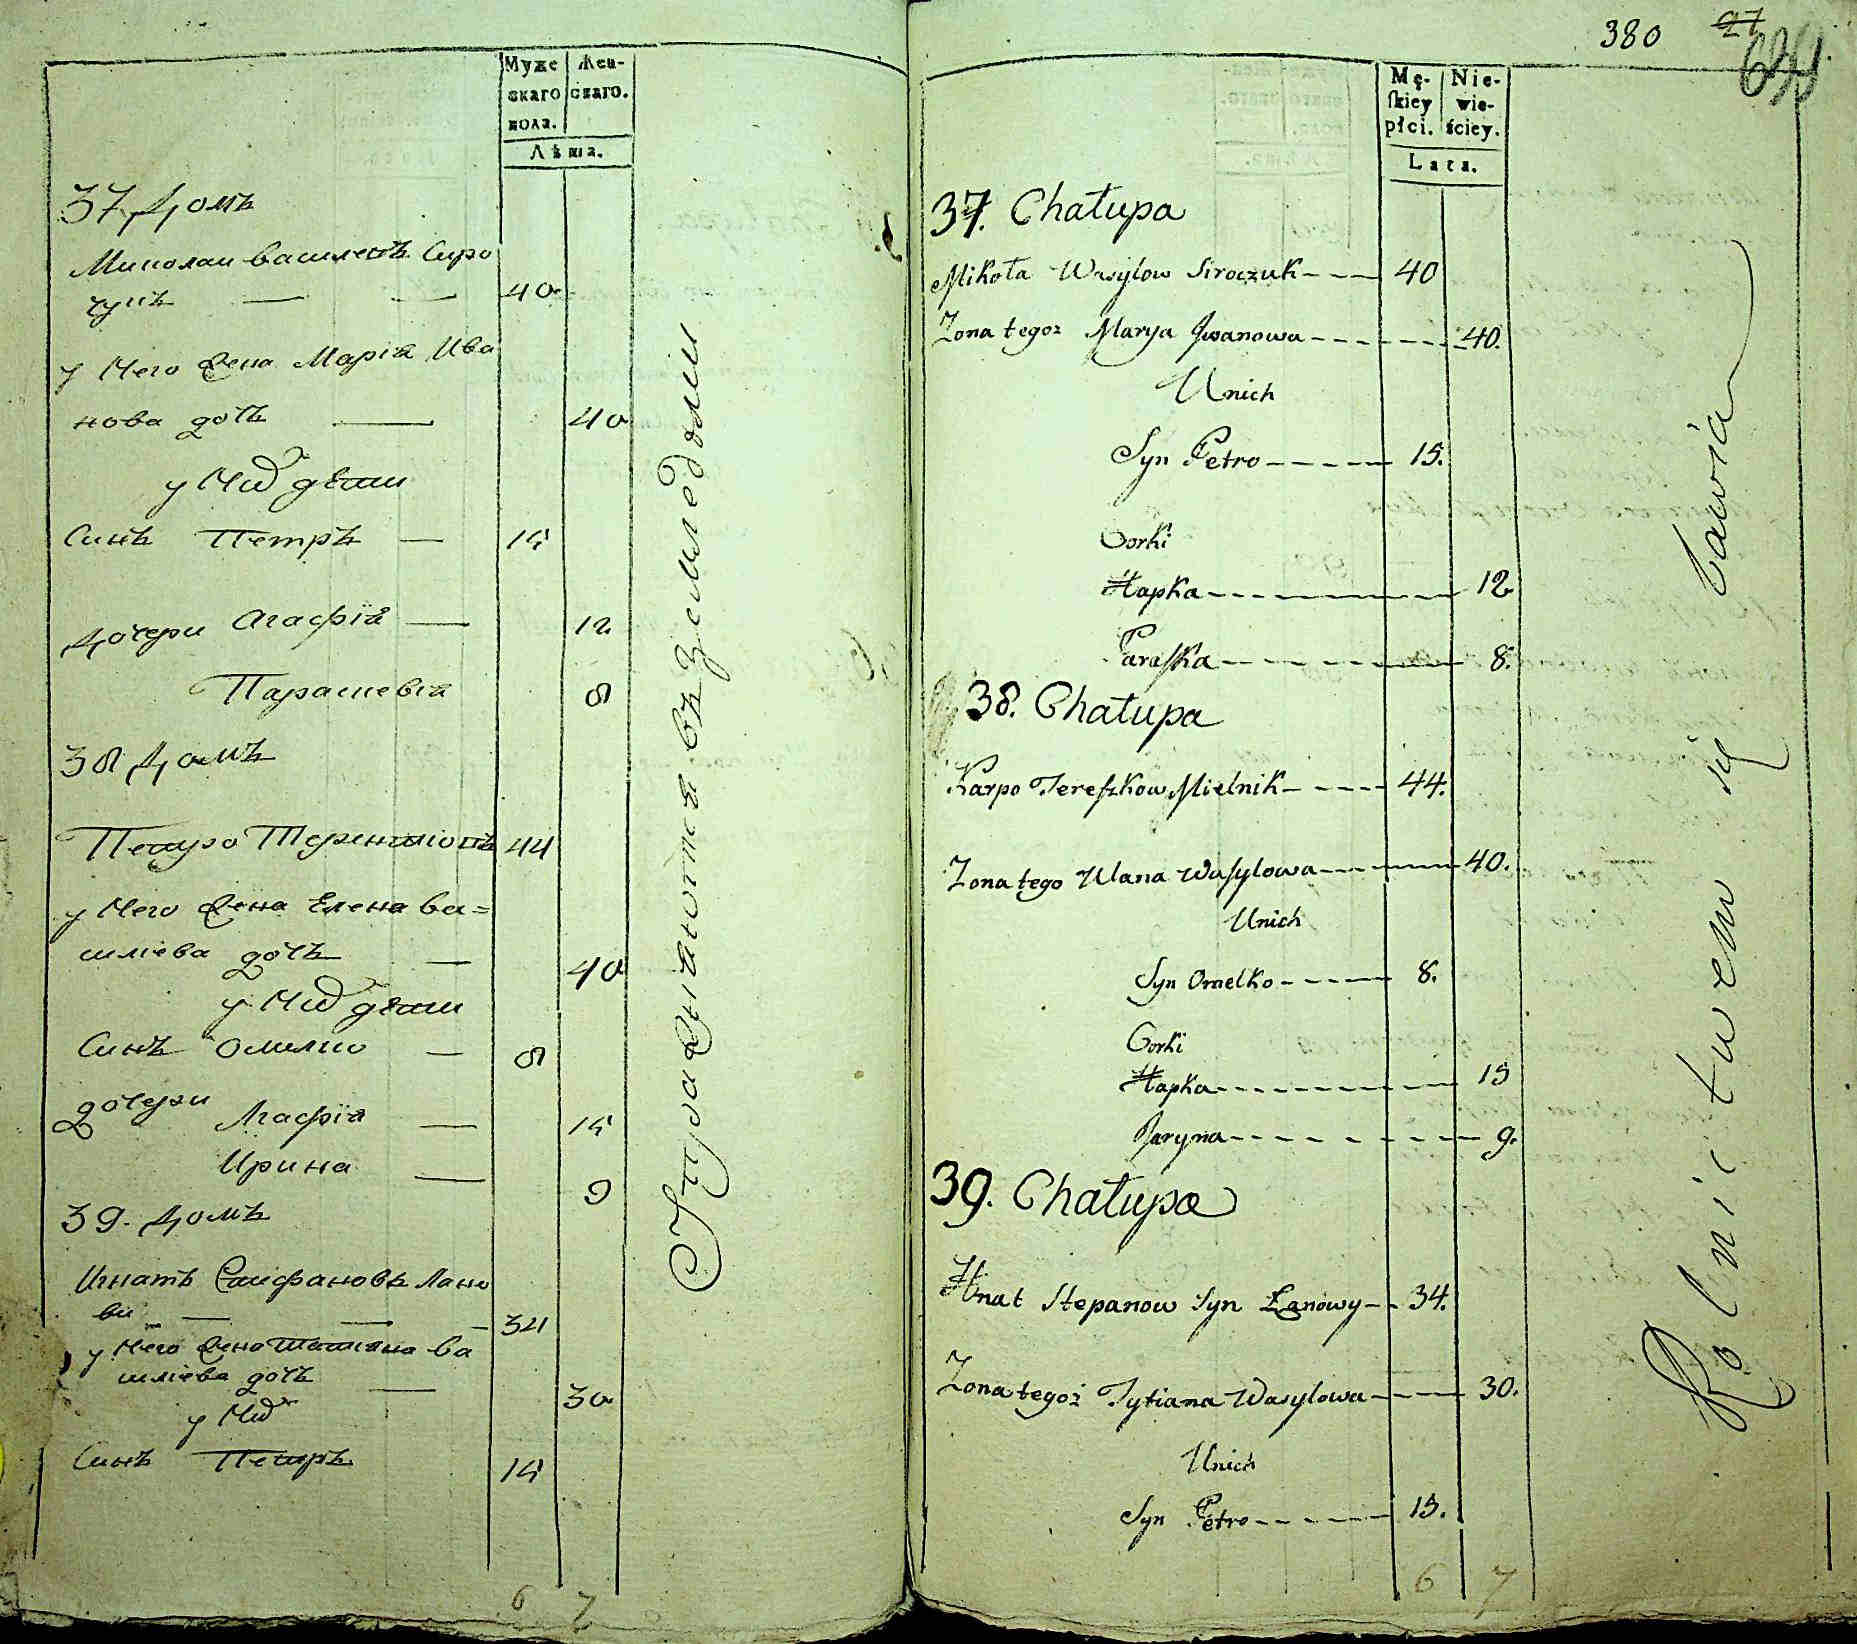 Муже
скаго
пола.
Жен-
скаго.
Лѣта.
37 Домъ
Миколаи Василевъ Сиро
чукъ 40
у Него Жена Марія Ива
нова дочь 40
у Них дѣти
Синъ Петръ 15
Дочери Агафія 12
Парасковія 8
38 Домъ
Петро Терентіовъ 44
у Него Жена Елена Ва=
силіева дочь 40
у Них дѣти
Синъ Омелко 8
дочери Агафія 15
Ирина 9
39. Домъ
Игнатъ Стифановъ Лано
ви 34
у Него Жена Татіяна Ва
силіева дочь 30
у Них
Синъ Петръ 15
6 7
Упражняются въ Земледелии
380 27
Mę-
skiey
płci.
Nie-
wie-
ściey.
Lata.
37. Chałupa
Mikoła Wasylow Siroczuk 40
Zona tegoz Marya Jwanowa 40.
U nich
Syn Petro 15.
Corki
Hapka 12
Paraska 8.
38. Chałupa
Karpo Tereszkow Mielnik 44.
Zona tego Ulana Wasylowa 40.
U nich
Syn Omelko 8.
Corki
Hapka 15
Jaryna 9.
39. Chałupa
Hnat Stepanow Syn Łanowy 34.
Zona tegoż Tytiana Wasylowa 30.
U nich
Syn Petro 15.
6 7
Rolnictwem się bawią